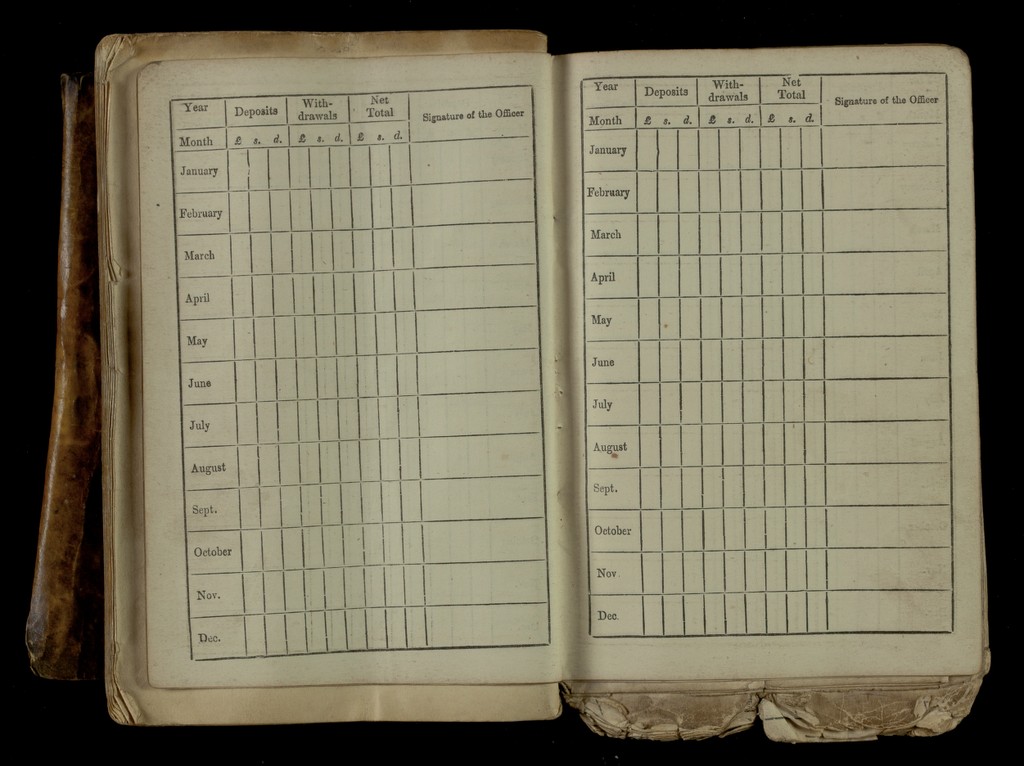 Year Deposits With-drawals Net Total Signature of the Officer
Month £ s. d. £ s. d. £ s. d.
January
February
March
April
May
June
July
August
Sept.
October
Nov.
Dec.
Year Deposits With-drawals Net Total Signature of the Officer
Month £ s. d. £ s. d. £ s. d.
January
February
March
April
May
June
July
August
Sept.
October
Nov
Dec.